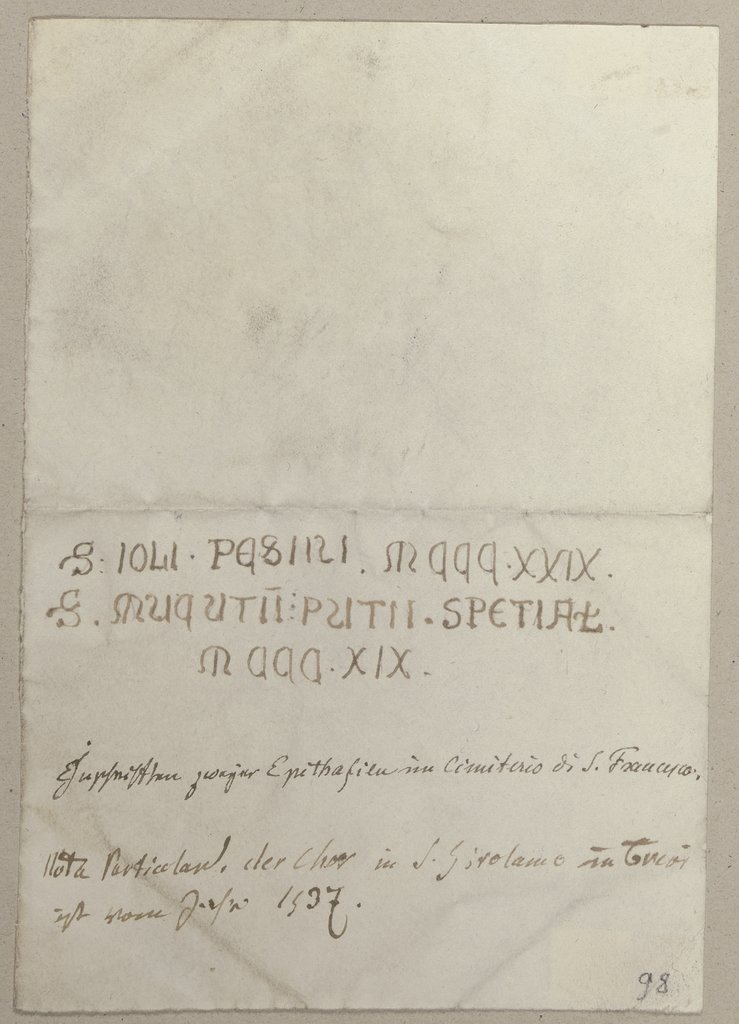 S: IOLI · PCSINI. MCCC·XXIX.
S. MUCUTII: PUTII · SPETIAŁ.
MCCC·XIX.
Inschriften zweyer Epithafien im Cimiterio di S. Francesco.
Nota Particular. der Chor in S. Girolamo in
ist vom Jahr 1537.
98